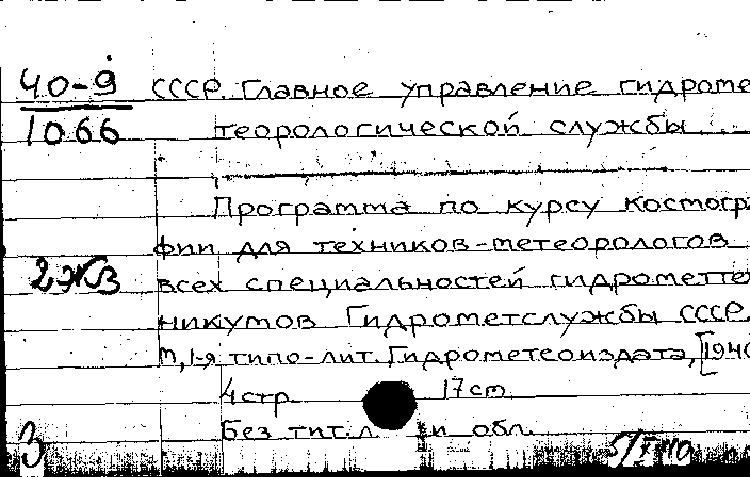 40-9 СССР. Главное управление гидроме
1066 теорологической службы
Программа по курсу космогра
фии для техников-метеорологов
2экз всех специальностей гидрометте
никумов Гидрометслужбы СССР.
м, 1-я типо-лит. Гидрометеоиздата, [1940
4 стр. 17 cm
Без тит. л. и обл.
3